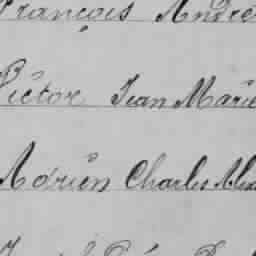 François André
Victor Jean Marie
Adrien Charles Alex